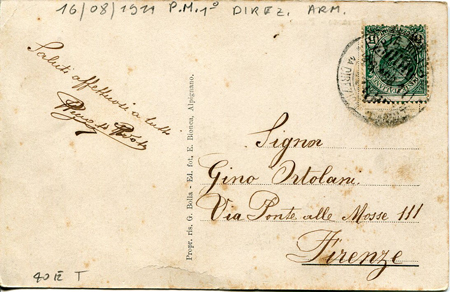 16/08/1921 P.M. 1° DIREZ. ARM.
Saluti affettuosi a tutti
Signor
Gino Ortolani
Via Ponte alle Mosse 111
Firenze
Propr. ris. G. Bolla - Ed. fot. E. Bionca, Alpignano.